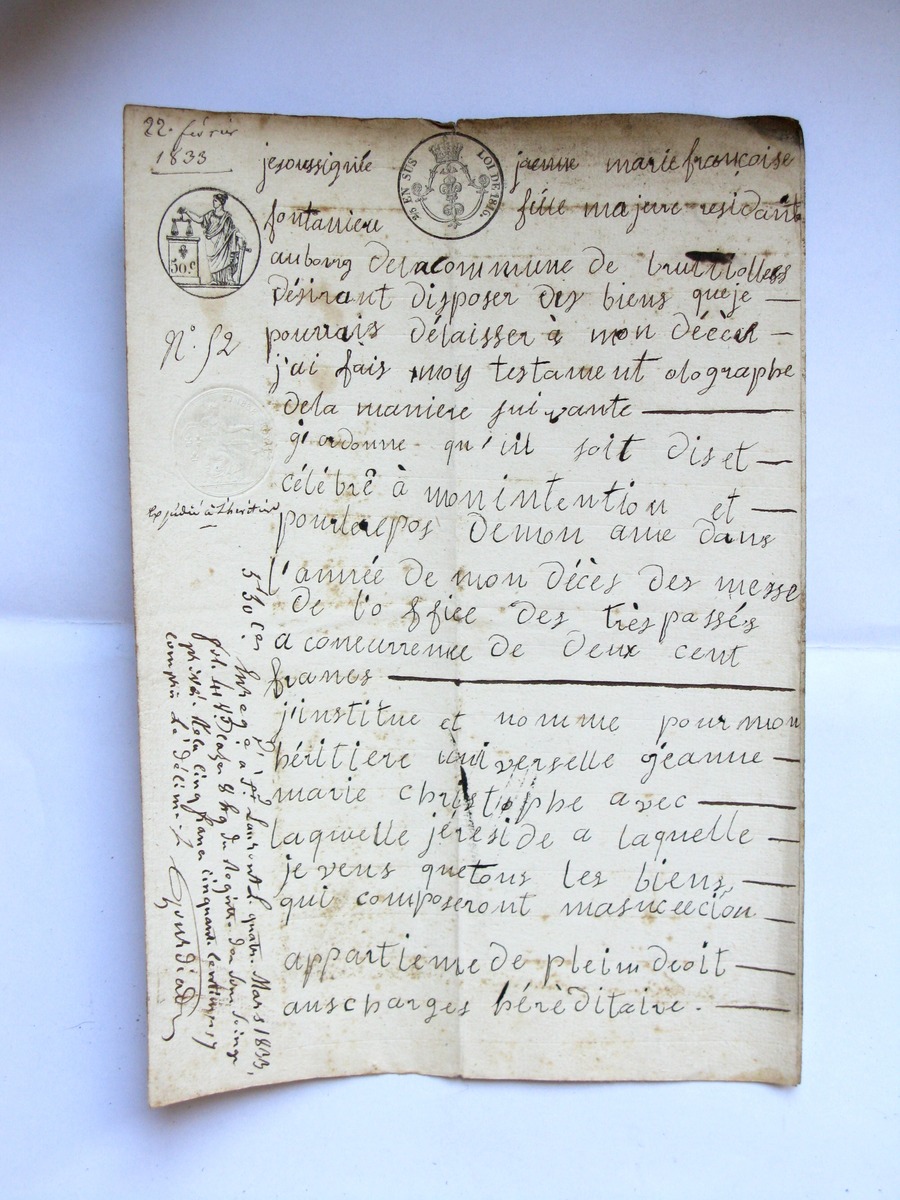 22. février
1833
jesoussignée jeanne mariefrançoise
25 EN SUS LOI DE 1816
fontaniere fille majeure residante
50c
aubourg delacommune de brullolless
désirant disposer des biens queje
pourrais délaisser à mon déècel
N° 52
j'ai fais moy testament olographe
dela maniere suivante
j'ordonne qu'iil soit diset
célébré à monintention et
expédié à l'héritière
pourlerepos demon ame dans
l'année de mon décès des messe
de l'o ffice des trèspassés
a concurrence de deux cent
francs
j'institue et nomme pourmon
héritiere universelle jeanne
marie christophe avec
laquelle jéréside a laquelle
je veus quetous les biens
qui composeront masuccecion
appartiene de plein droit
auscharges héréditaire.
Enreg. à St Laurent le quatre Mars 1833,
fol. 41
Reçu cinq francs cinquante centimes
compris le décime